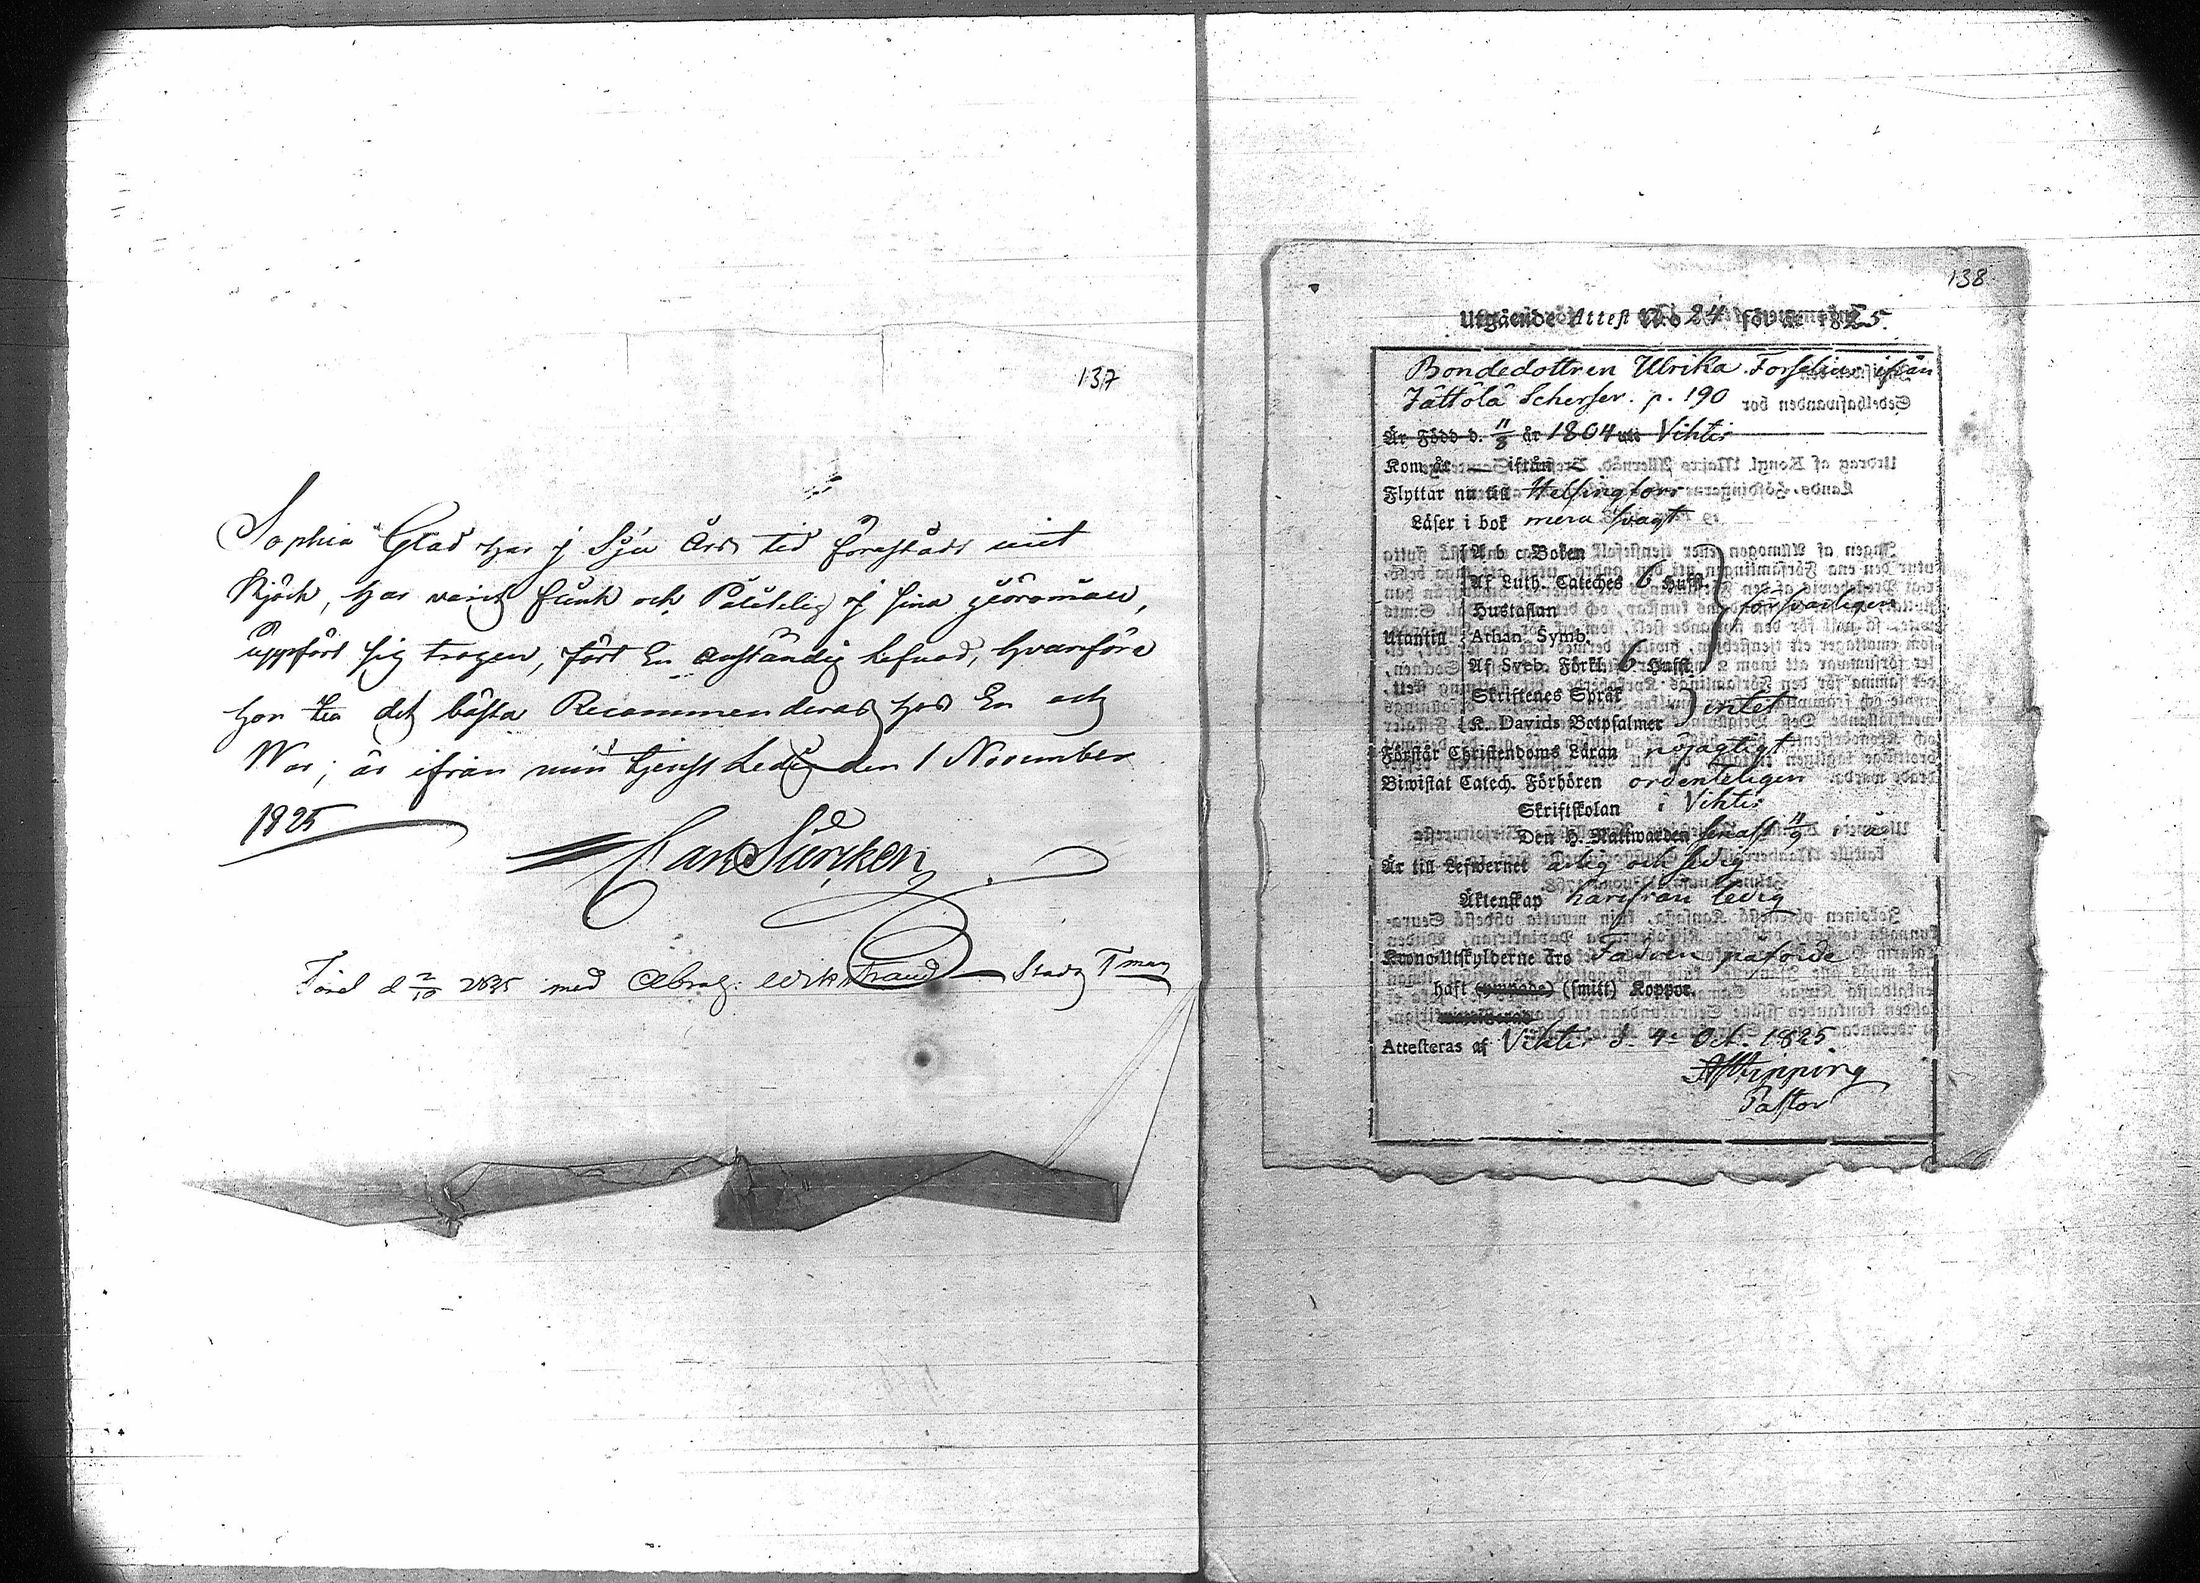 137
Sophia Glad har j Sju Års tid förestådt mit
Kjöck, har varit flink och Pålitelig j sina giöromåll,
uppfört sig trogen, fört En anständig lefnad, hvarföre
hon til det bästa Recommenderas hos En och
War; är ifrån min tjenst Ledig den 1 November
1825
Carl Sürken
med Wikstrand
138
Utgående Attest N:o 24 för år 1825.
Bondedottren Ulrika Forselius ifrån
Jättölä Scherfer. p. 190
Är Född d. 11/8 år 1804 uti Vihtis
Kom år — ifrån —
Flyttar nu till Helsingfors
Läser i bok mera svagt
A b c Boken
Af Luth. Cateches 6 Hufst.
Hustaflan försvarligen
Utantill Athan. Symb.
Af Sveb. Förkl. 6 Hufst.
Skriftenes Språk
K. Davids Botpsalmer intet
Förstår Christendoms Läran nöjagtigt
Biwistat Catech. Förhören ordenteligen
Skriftskolan i Vihtis
Den H. Nattwarden senast 11/9 i. å.
Är till Lefwernet ärlig och sedig
Äktenskap härifrån ledig
Krono-Utskylderne äro Fadren påförde
haft (ympade) (smitt) Koppor.
Attesteras af Vihtis d. 4 Oct. 1825.
Hipping
Pastor